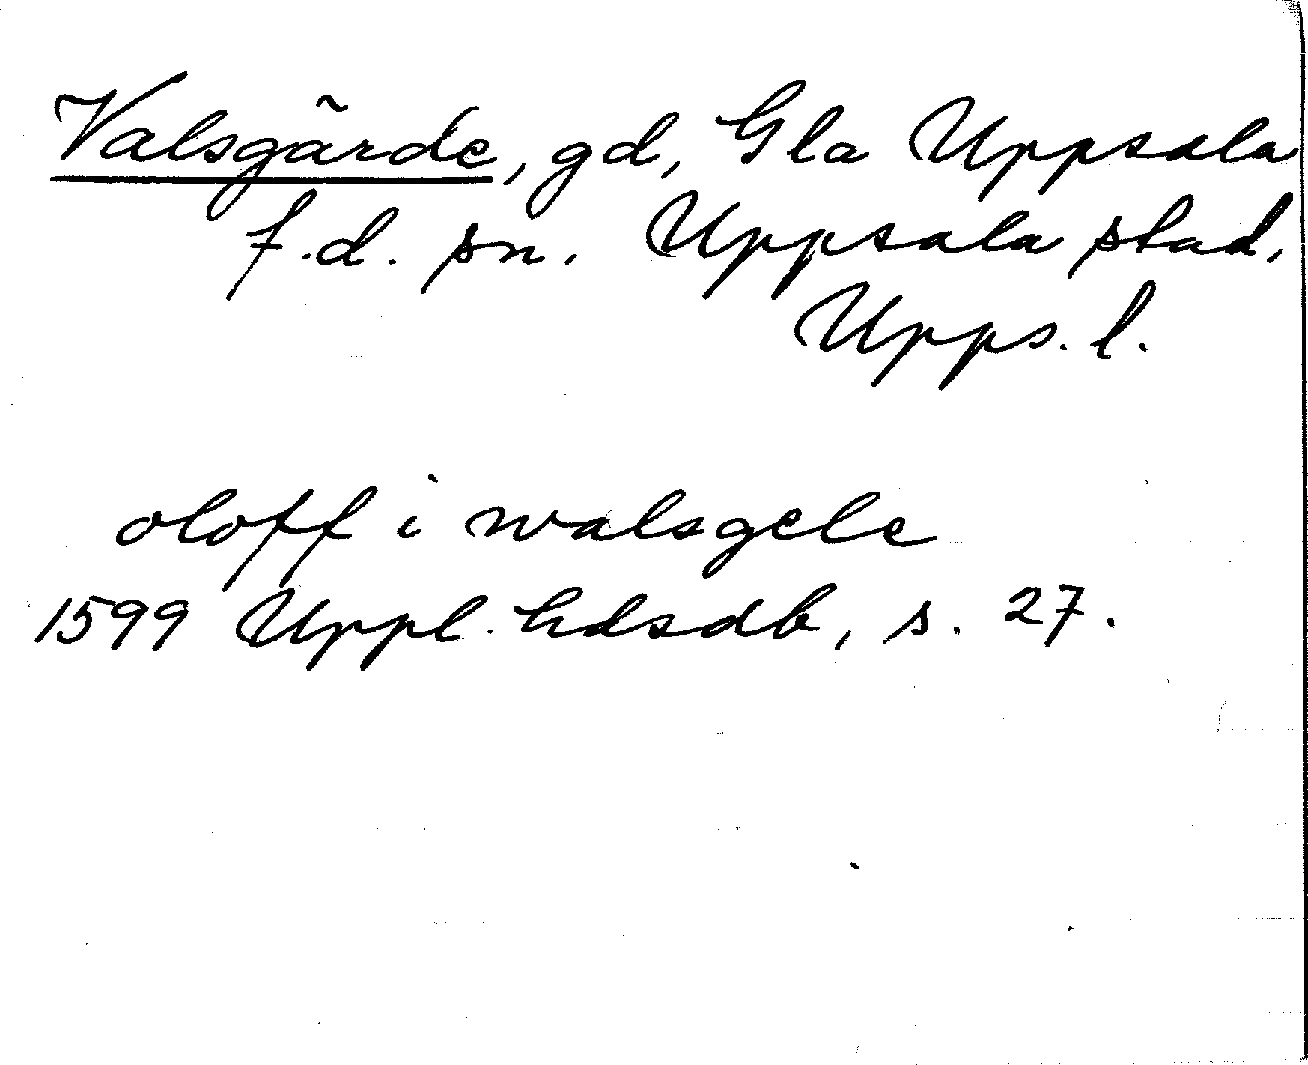 Valsgärde, gd, Gla Uppsala
f.d. sn. Uppsala stad,
Upps. l.
oloff i walsgele
1599 Uppl. hdsdb, s. 27.